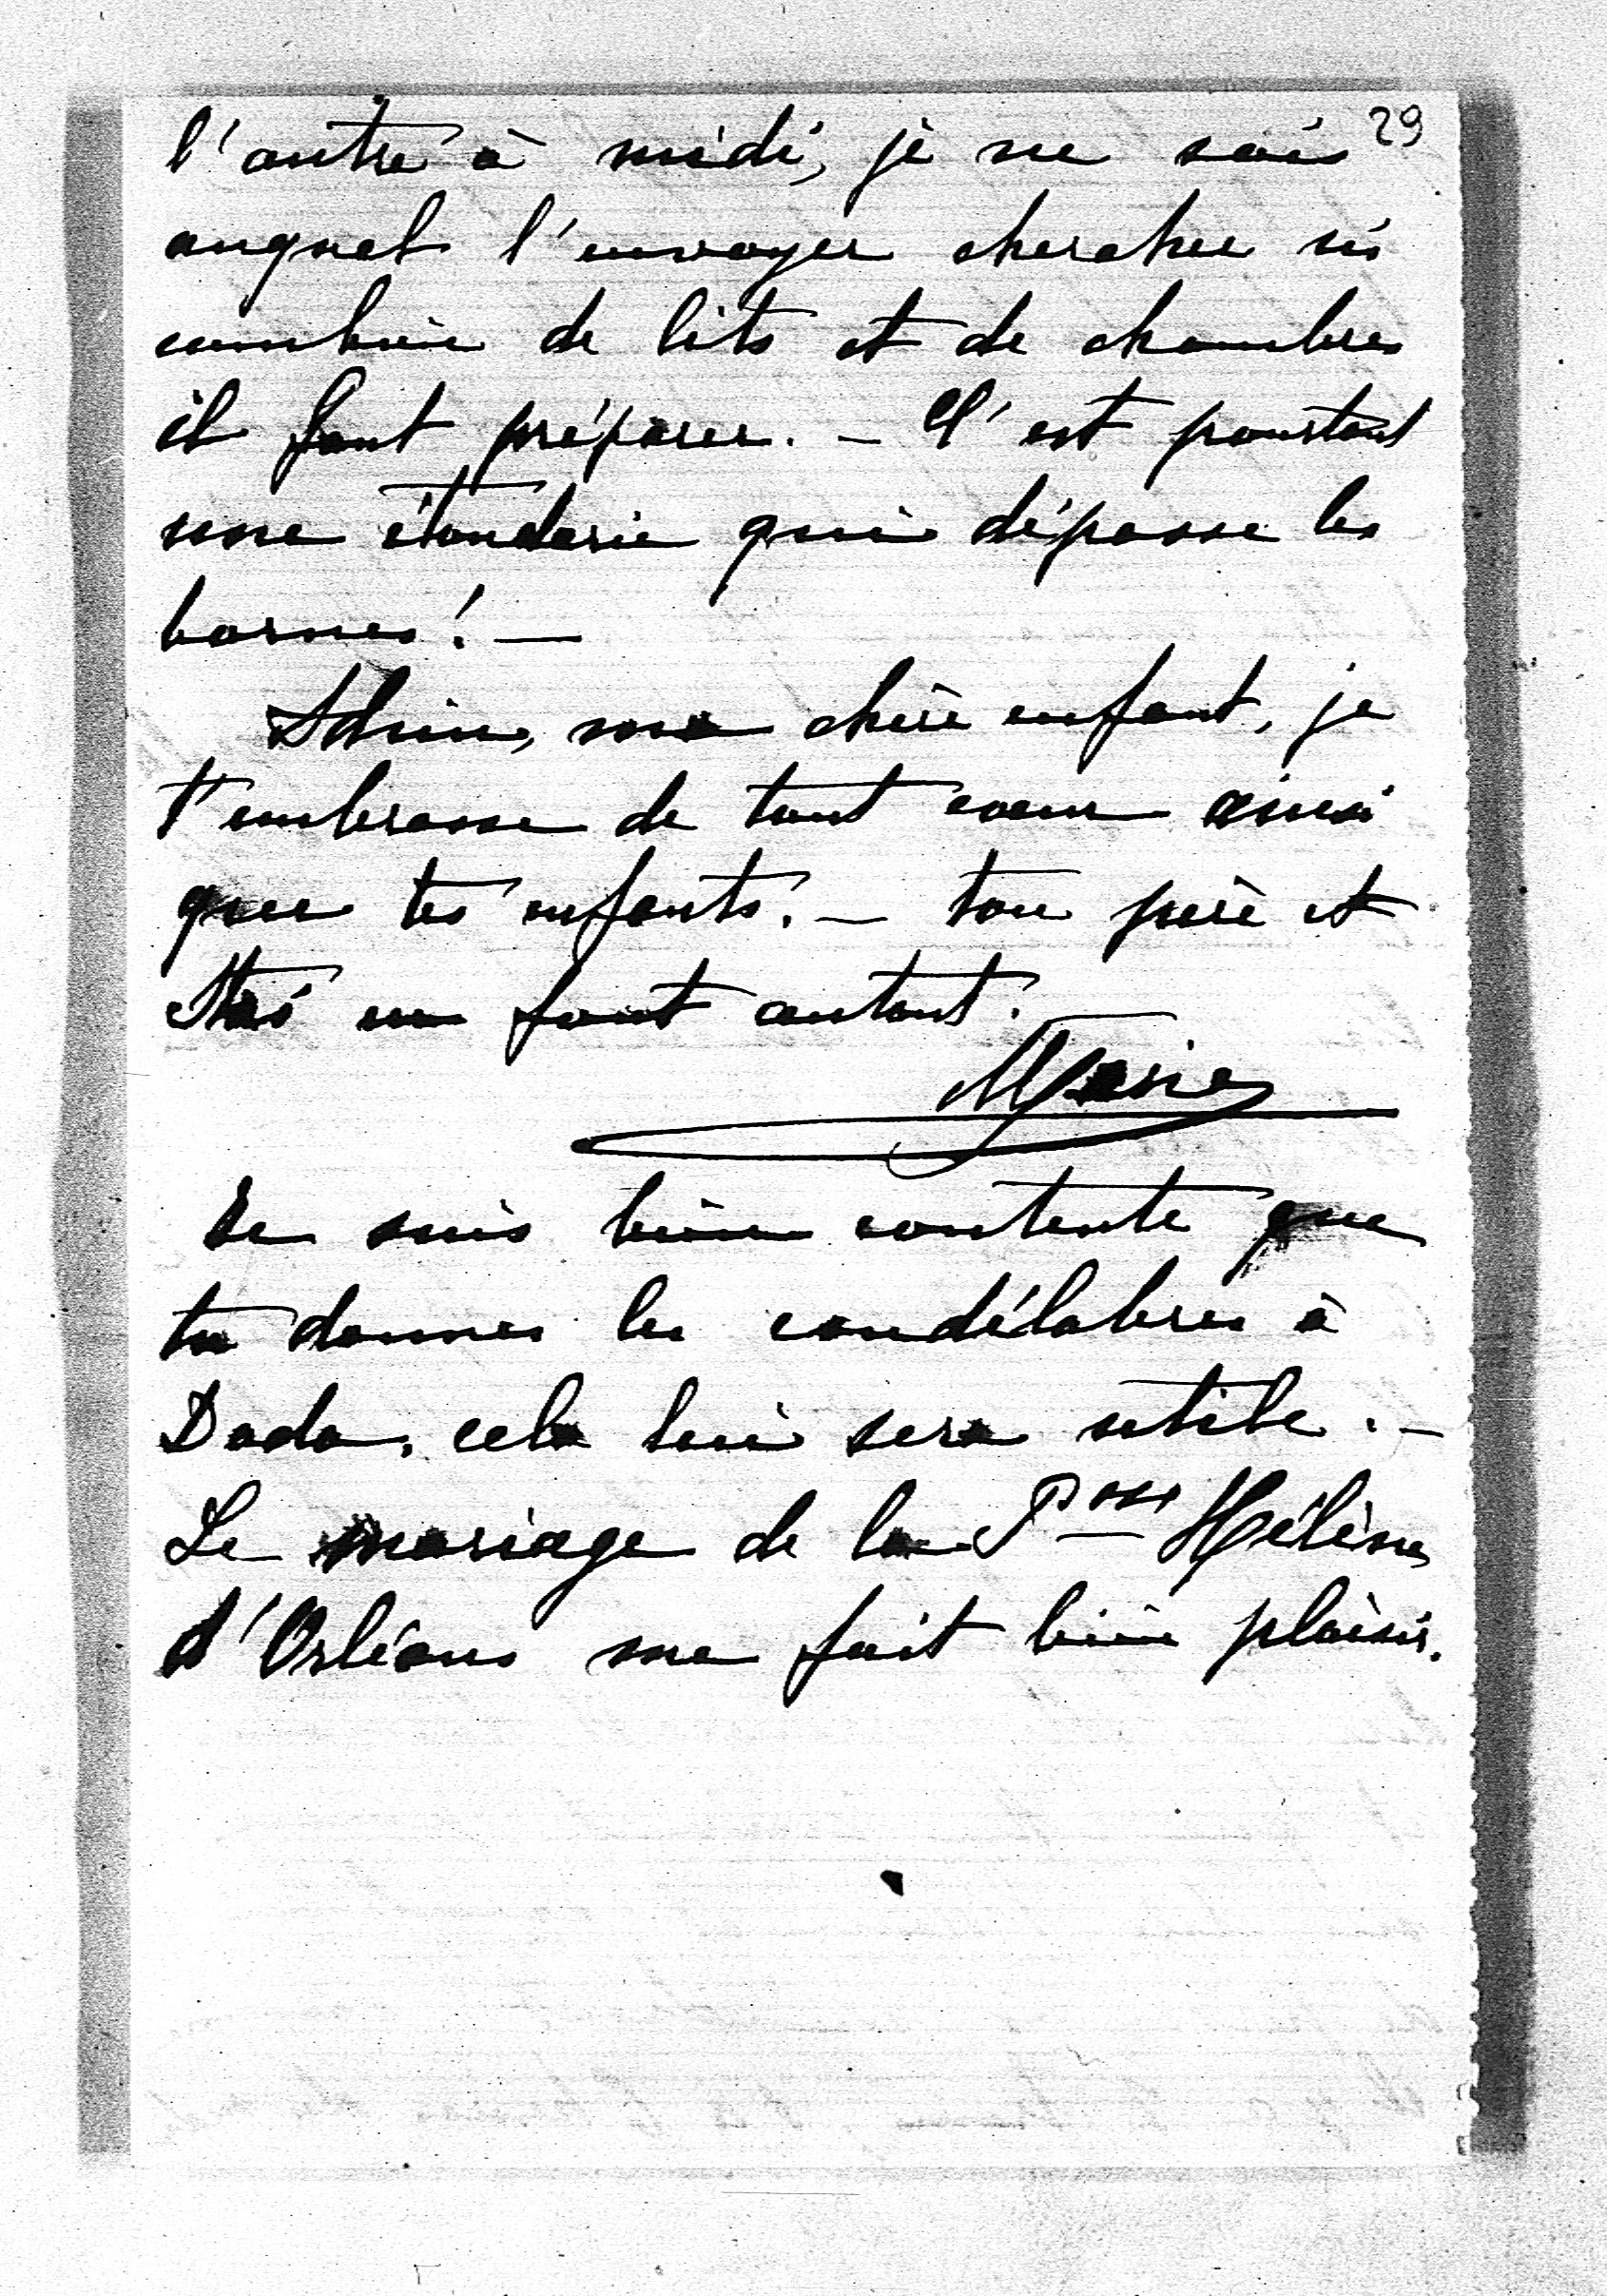 29
l'autre à midi, je ne sais
auquel l'envoyer chercher ni
combien de lits et de chambres
il faut préparer. — C'est pourtant
une étourderie qui dépasse les
bornes! —
Adieu, ma chère enfant, je
t'embrasse de tout coeur ainsi
que tes enfants. — ton père et
en font autant.
Marie
Je suis bien contente que
tu donnes les candélabres à
Dada, cela lui sera utile. —
Le mariage de la Psse Hélène
d'Orléans me fait bien plaisir.